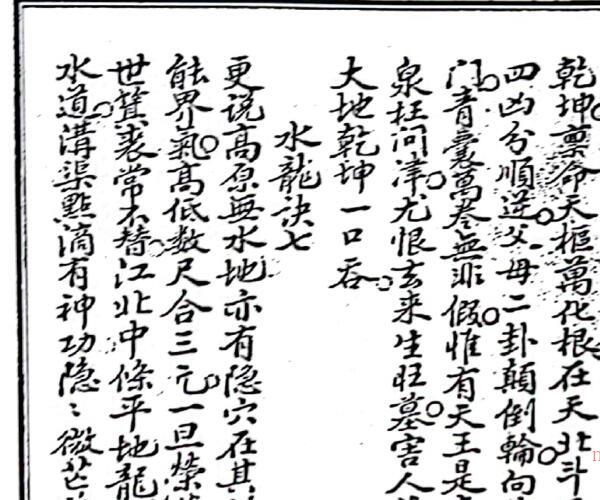 乾坤稟命天樞萬化根在天北斗
四凶分順逆父母二卦顛倒輪向
门青囊萬卷無非假惟有天王是
泉枉问津尤恨玄来生旺墓害人
大地乾坤一口吞
水龍訣七
更说高原無水地亦有隐穴在其
能界氣高低数尺合三元一旦榮
世箕裘常不替江北中條平地龍
水道溝渠點滴有神功隐〻微茫